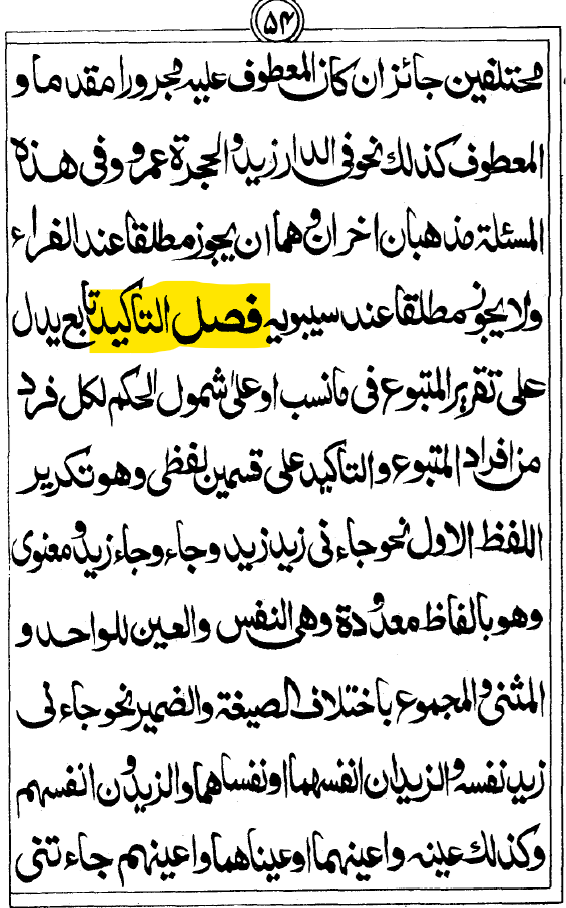 ۵۴
مختلفين جائز ان كان المعطوف عليه مجرورا مقدما و
المعطوف كذلك نحو فى الدار زيد والحجرة عمرو وفى هذه
المسئلة مذهبان اخران وهما ان يجوز مطلقا عند الفراء
ولا يجوز مطلقا عند سيبويه فصل التاكيد تابع يدل
على تقرير المتبوع فى مانسب او على شمول الحكم لكل فرد
من افراد المتبوع والتاكيد على قسمين لفظى وهو تكرير
اللفظ الاول نحو جاءنى زيد زيد وجاء وجاء زيد ومعنوى
وهو بالفاظ معدودة وهى النفس والعين للواحد و
المثنى والمجموع باختلاف الصيغة والضمير نحو جاءنى
زيد نفسه والزيدان انفسهما او نفساهما والزيدون انفسهم
وكذلك عينه واعينهما او عيناهما واعينهم جاءتنى